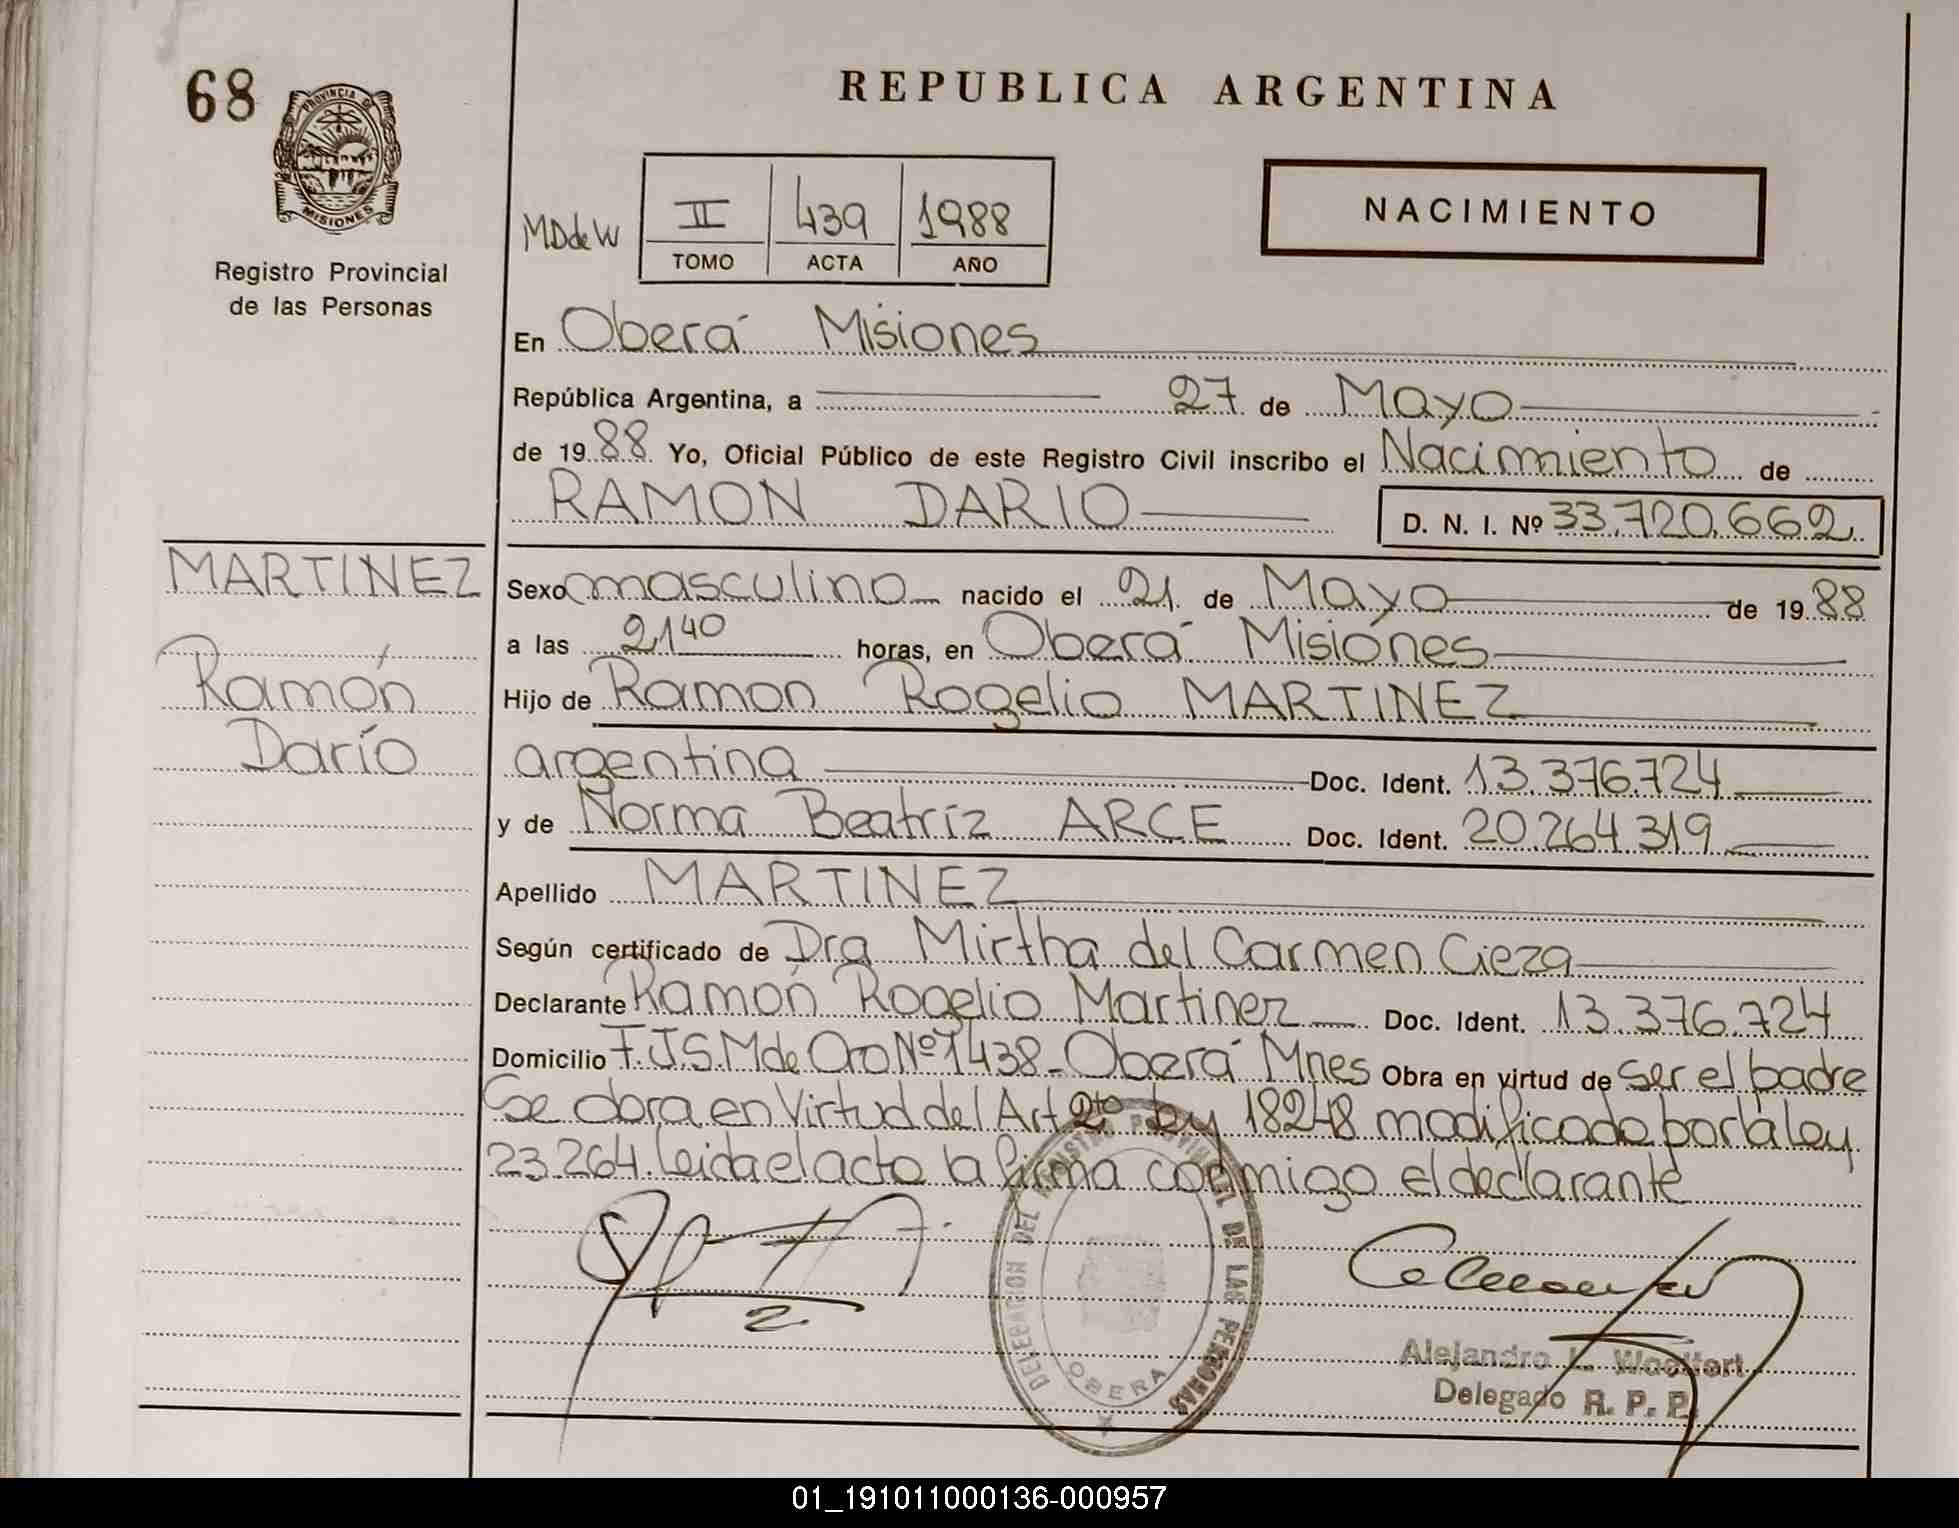 68
PROVINCIA DE
MISIONES
Registro Provincial
de las Personas
REPUBLICA ARGENTINA
MDdeW
II 439 1988
TOMO ACTA AÑO
NACIMIENTO
En Oberá Misiones
República Argentina, a 27 de Mayo
de 1988 Yo, Oficial Público de este Registro Civil inscribo el Nacimiento de
RAMON DARIO D. N. I. Nº 33.720.662
MARTINEZ
Ramón
Darío
Sexo masculino nacido el 21 de Mayo de 1988
a las 21⁴⁰ horas, en Oberá Misiones
Hijo de Ramon Rogelio MARTINEZ
argentina Doc. Ident. 13.376.724
y de Norma Beatríz ARCE Doc. Ident. 20.264.319
Apellido MARTINEZ
Según certificado de Dra Mirtha del Carmen Cieza
Declarante Ramón Rogelio Martinez Doc. Ident. 13.376.724
Domicilio F.J.S.M de Oro Nº 1438 - Oberá Mnes Obra en virtud de ser el padre
Se obra en Virtud del Art 2to ley 18248 modificado por la ley
23.264. Leida el acto la firma conmigo el declarante
DELEGACION DEL REGISTRO PROVINCIAL DE LAS PERSONAS
OBERA
Alejandro L. Woelfert
Delegado R. P. P.
01_191011000136-000957